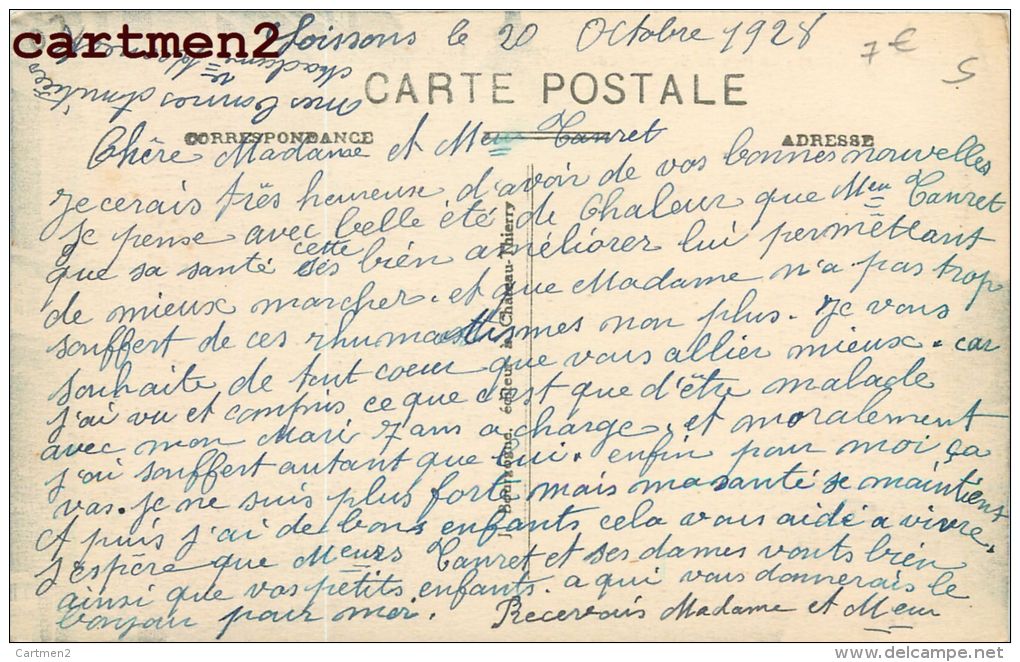 cartmen2
Soissons le 20 Octobre 1928
7€
5
mes bonnes amitiées
CARTE POSTALE
CORRESPONDANCE
ADRESSE
Chère Madame et Meur Tanret
Je cerais très heureuse d'avoir de vos bonnes nouvelles
Je pense avec belle été de Chaleur que Meu Tanret
cette
que sa santé ses bién améliorer lui permêttant
de mieux marcher. et que Madame n'a pas trop
souffert de ces rhumastismes non plus. Je vous
souhaite de tout coeur que vous allier mieux. car
j'ai vu et compris ce que c'est que d'être malade
avec mon Mari 7 ans a charge, et moralement
j'ai souffert autant que lui. enfin pour moi ça
vas. je ne suis plus forte mais ma santé se maintient
et puis j'ai de bons enfants cela vous aide a vivre.
J'espère que Meurs Tanret et ses dames vonts bién
ainsi que vos petits enfants. a qui vous donnerais le
bonjour pour moi. Recevois Madame et Meur
J. Bourgogne, éditeur à Chateau-Thierry
Cartmen2
www.delcampe.net